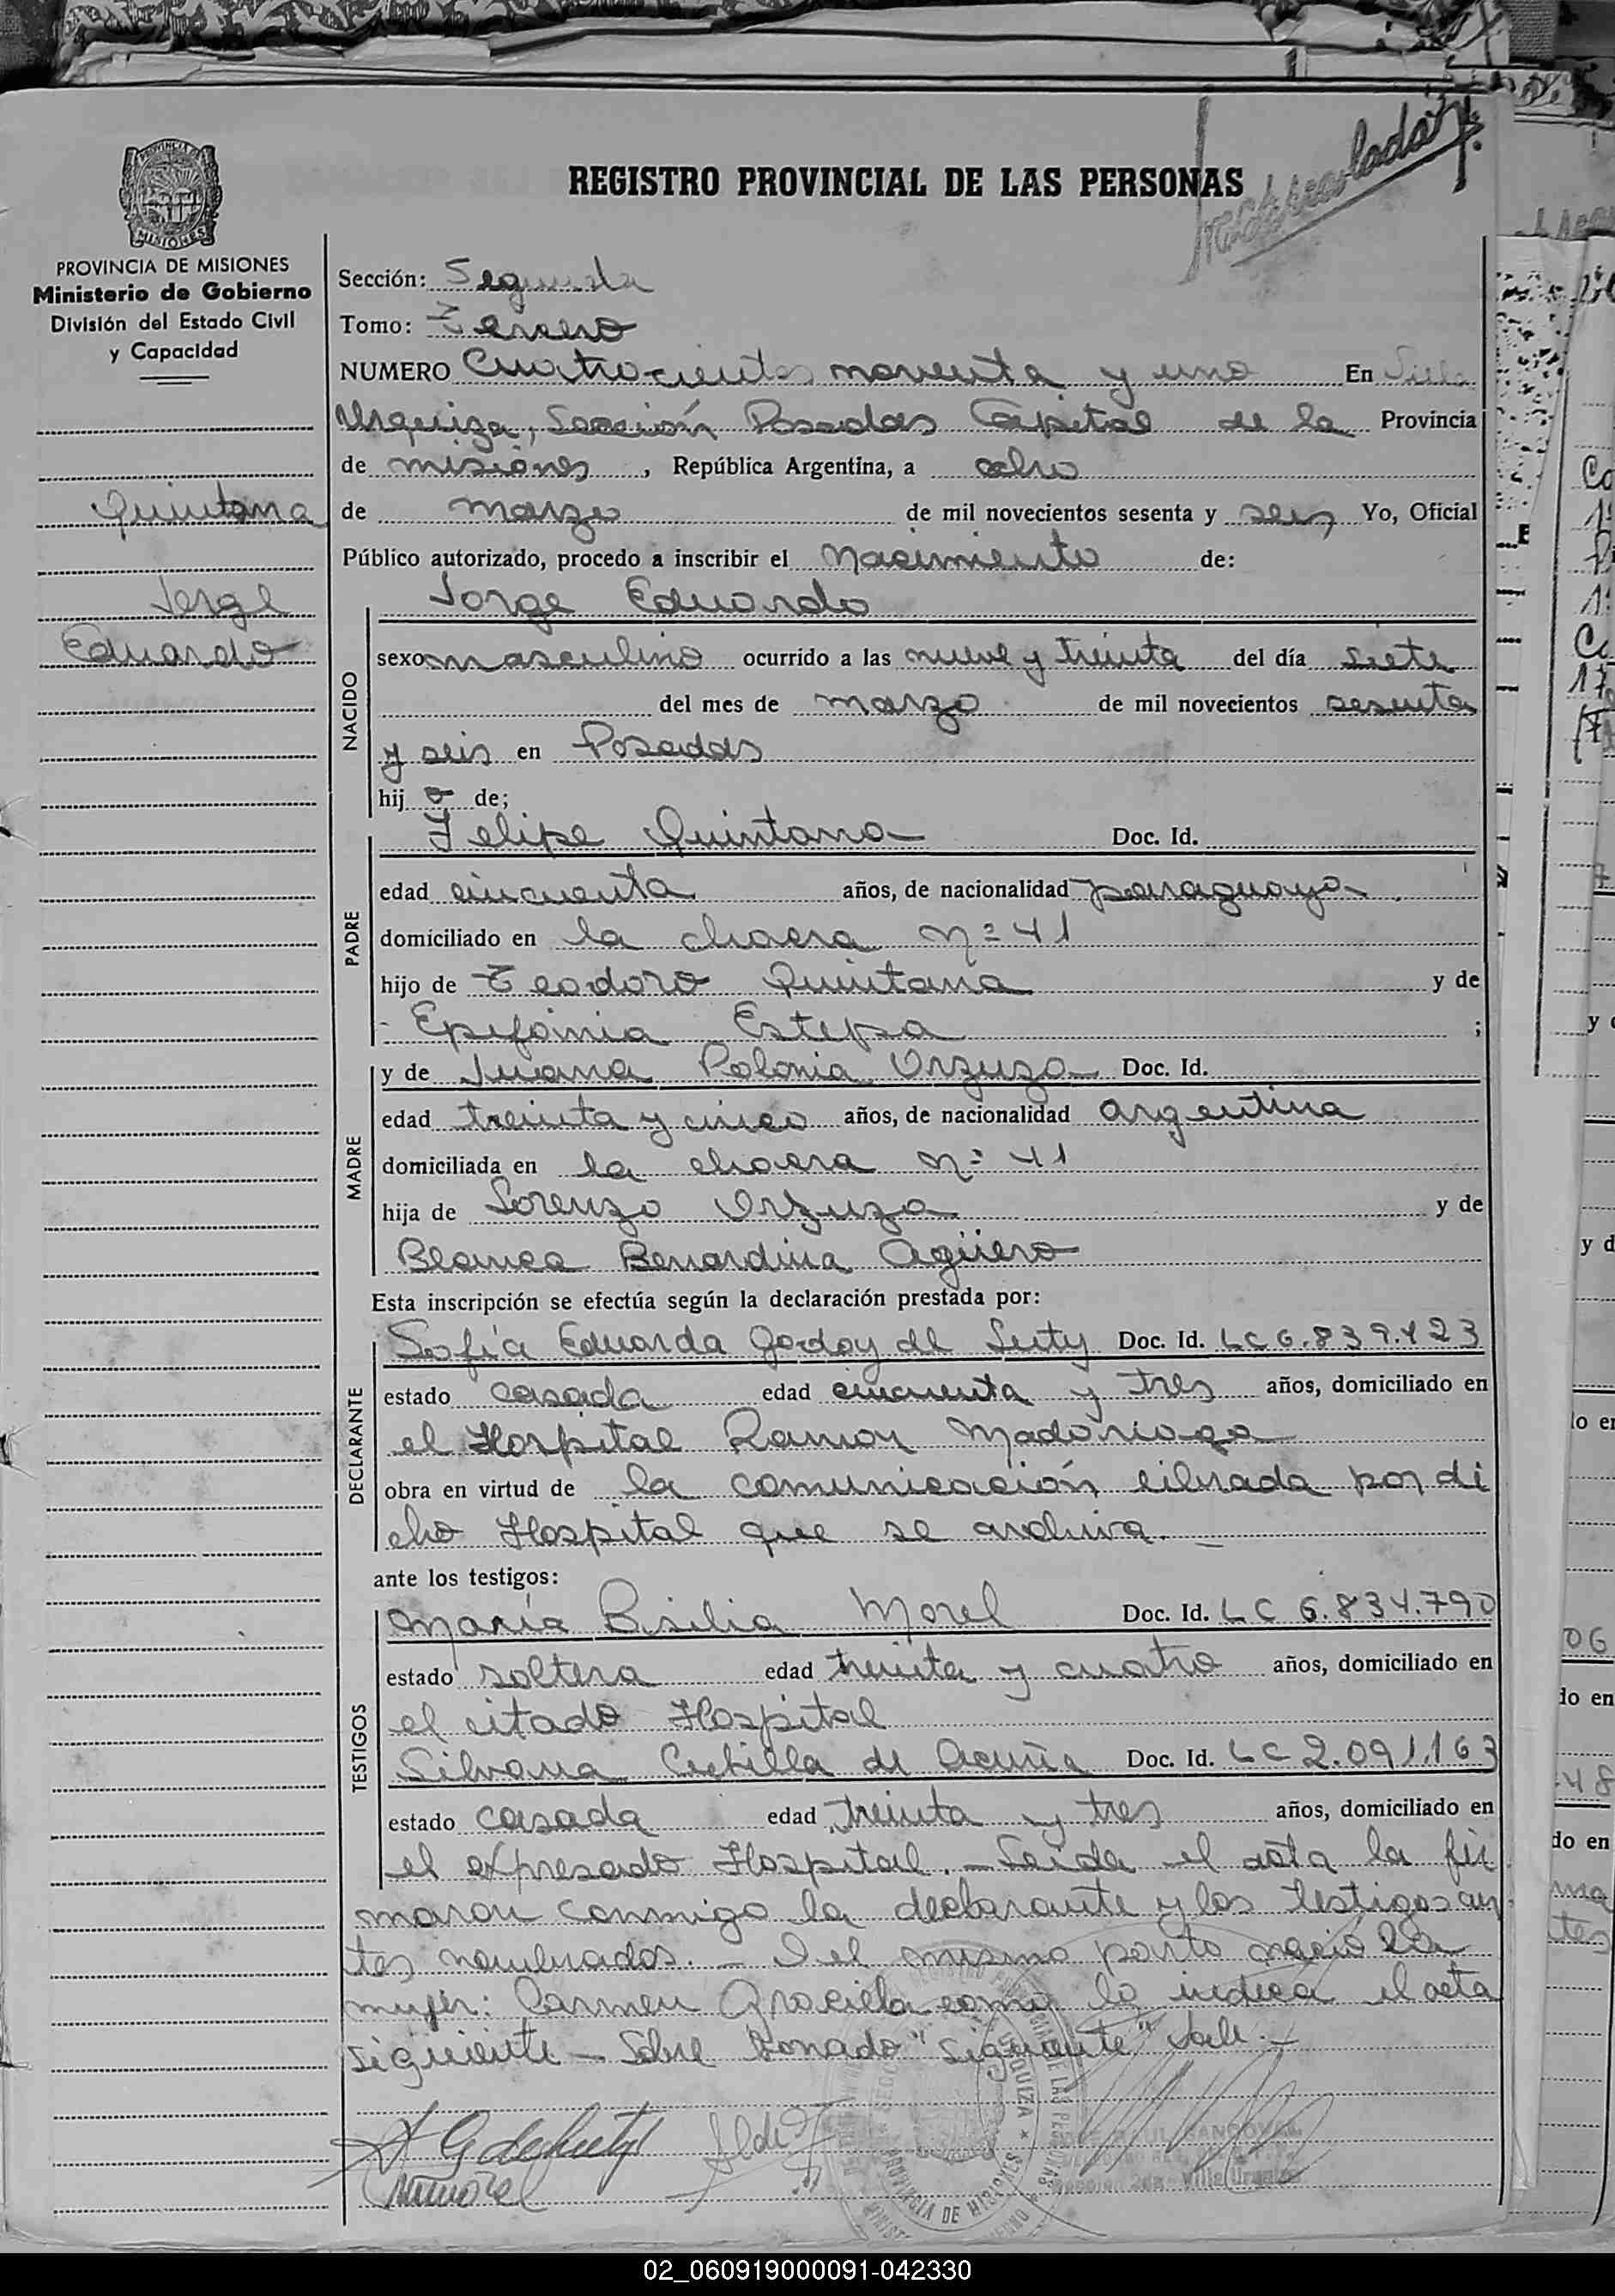 REGISTRO PROVINCIAL DE LAS PERSONAS
matriculado
PROVINCIA DE MISIONES
Ministerio de Gobierno
División del Estado Civil
y Capacidad
Quintana
Jorge
Eduardo
Sección: Segunda
Tomo: Tercero
NUMERO Cuatrocientos noventa y uno En Villa
Urquiza, Sección Posadas Capital de la Provincia
de misiones, República Argentina, a ocho
de marzo de mil novecientos sesenta y seis Yo, Oficial
Público autorizado, procedo a inscribir el Nacimiento de:
NACIDO
Jorge Eduardo
sexo masculino ocurrido a las nueve y treinta del día siete
del mes de marzo de mil novecientos sesenta
y seis en Posadas
hij o de;
PADRE
Felipe Quintana Doc. Id.
edad cincuenta años, de nacionalidad paraguaya
domiciliado en la chacra nº 41
hijo de Teodoro Quintana y de
Epifania Estepa ;
MADRE
y de Juana Polonia Orzuza Doc. Id.
edad treinta y cinco años, de nacionalidad argentina
domiciliada en la chacra nº 41
hija de Lorenzo Orzuza y de
Blanca Bernardina Agüero
Esta inscripción se efectúa según la declaración prestada por:
DECLARANTE
Sofía Eduarda Godoy de Doc. Id. LC 6.839.423
estado casada edad cincuenta y tres años, domiciliado en
el Hospital Ramon Madariaga
obra en virtud de la comunicación librada por di
cho Hospital que se archiva.
ante los testigos:
TESTIGOS
María Basilia Morel Doc. Id. LC 6.834.790
estado soltera edad treinta y cuatro años, domiciliado en
el citado Hospital
Silvana de Acuña Doc. Id. LC 2.091.163
estado casada edad treinta y tres años, domiciliado en
el expresado Hospital. - Leida el acta la fir
maron conmigo la declarante y los testigos an
tes nombrados. - Del mismo parto nació la
mujer: Carmen Graciela como lo indica el acta
siguiente - Sobre borrado "siguiente" vale. -
02_060919000091-042330